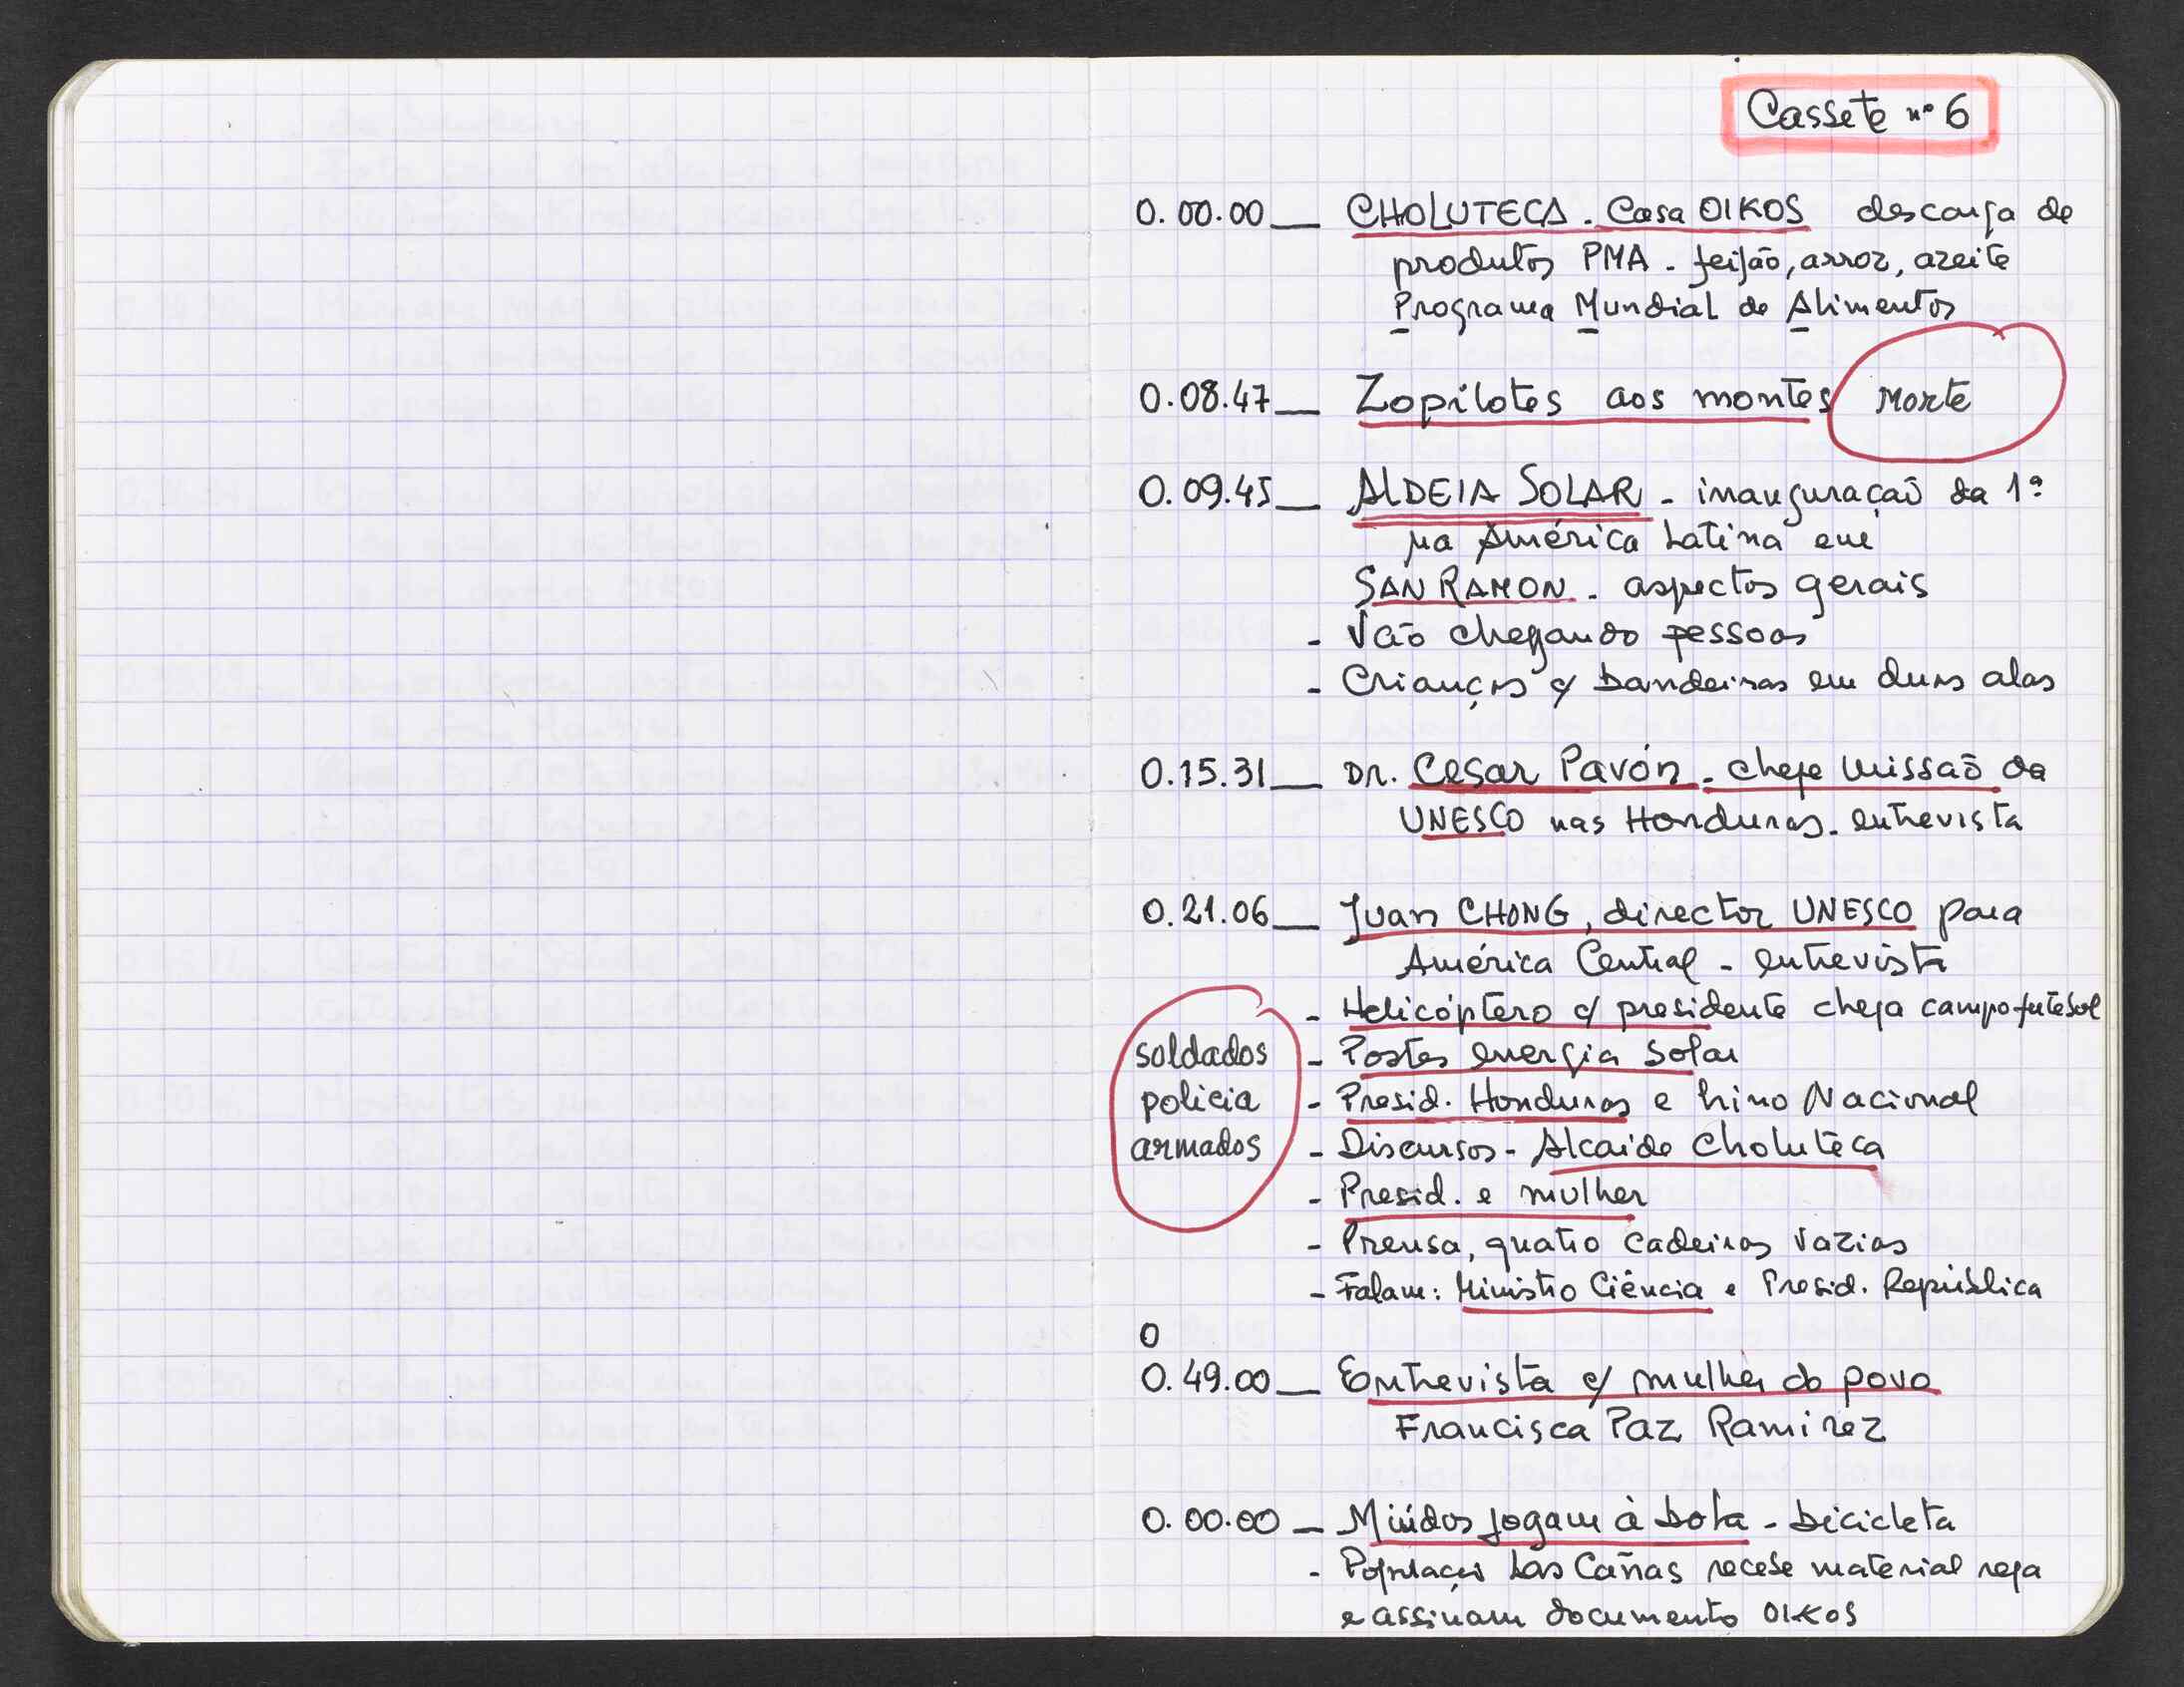 Cassete nº 6
0.00.00 — CHOLUTECA. Casa OIKOS descarga de
produtos PMA - feijão, arroz, azeite
Programa Mundial de Alimentos
0.08.47 — Zopilotes aos montes Morte
0.09.45 — ALDEIA SOLAR - inauguração da 1ª
na América Latina em
SAN RAMON - aspectos gerais
- Vão chegando pessoas
- Crianças c/ bandeiras em duas alas
0.15.31 — DR. Cesar Pavón - chefe missão da
UNESCO nas Honduras - entrevista
0.21.06 — Juan CHONG, director UNESCO para
América Central - entrevista
- Helicóptero c/ presidente chega campo futebol
soldados - Postes energia solar
policia - Presid. Honduras e hino Nacional
armados - Discursos - Alcaide Choluteca
- Presid. e mulher
- Prensa, quatro cadeiras vazias
- Falam: Ministro Ciência e Presid. República
0
0.49.00 — Entrevista c/ mulher do povo
Francisca Paz Ramirez
0.00.00 — Miúdos jogam à bola - bicicleta
- População Las Cañas recebe material rega
e assinam documento OIKOS